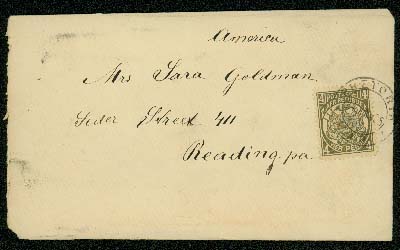 America
Mrs Sara Goldman
Seder Street 411
Reading pa.